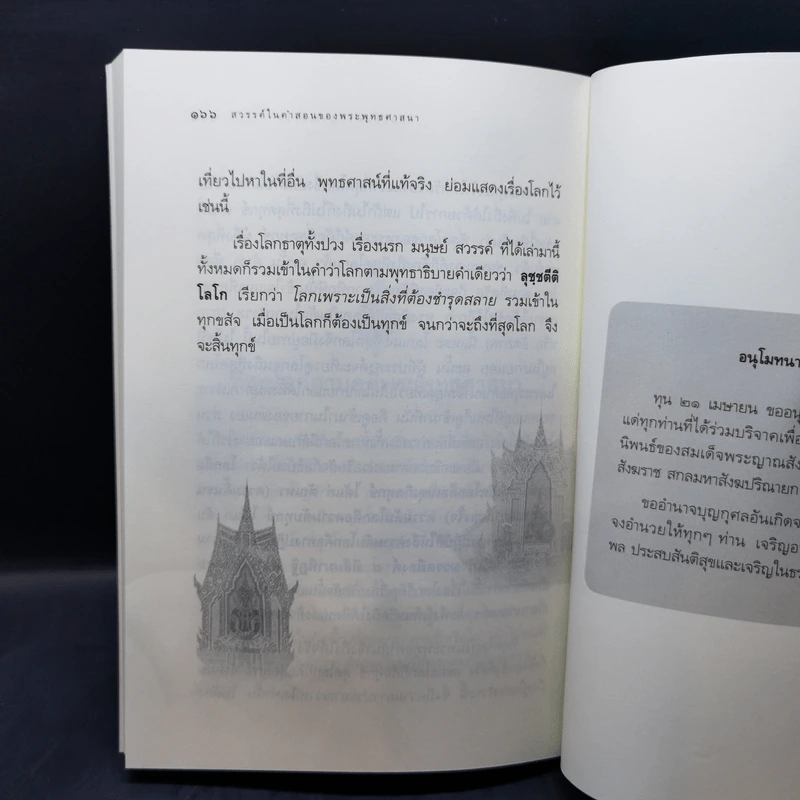 ๑๖๖ สวรรค์ในคำสอนของพระพุทธศาสนา
เที่ยวไปหาในที่อื่น พุทธศาสน์ที่แท้จริง ย่อมแสดงเรื่องโลกไว้
เช่นนี้
เรื่องโลกธาตุทั้งปวง เรื่องนรก มนุษย์ สวรรค์ ที่ได้เล่ามานี้
ทั้งหมดก็รวมเข้าในคำว่าโลกตามพุทธาธิบายคำเดียวว่า ลุชฺชตีติ
โลโก เรียกว่า โลกเพราะเป็นสิ่งที่ต้องชำรุดสลาย รวมเข้าใน
ทุกขสัจ เมื่อเป็นโลกก็ต้องเป็นทุกข์ จนกว่าจะถึงที่สุดโลก จึง
จะสิ้นทุกข์
อนุโมทนา
ทุน ๒๑ เมษายน ขออนุ
แด่ทุกท่านที่ได้ร่วมบริจาคเพื่อ
นิพนธ์ของสมเด็จพระญาณสัง
สังฆราช สกลมหาสังฆปริณายก
ขออำนาจบุญกุศลอันเกิดจ
จงอำนวยให้ทุกๆ ท่าน เจริญอ
พล ประสบสันติสุขและเจริญในธร